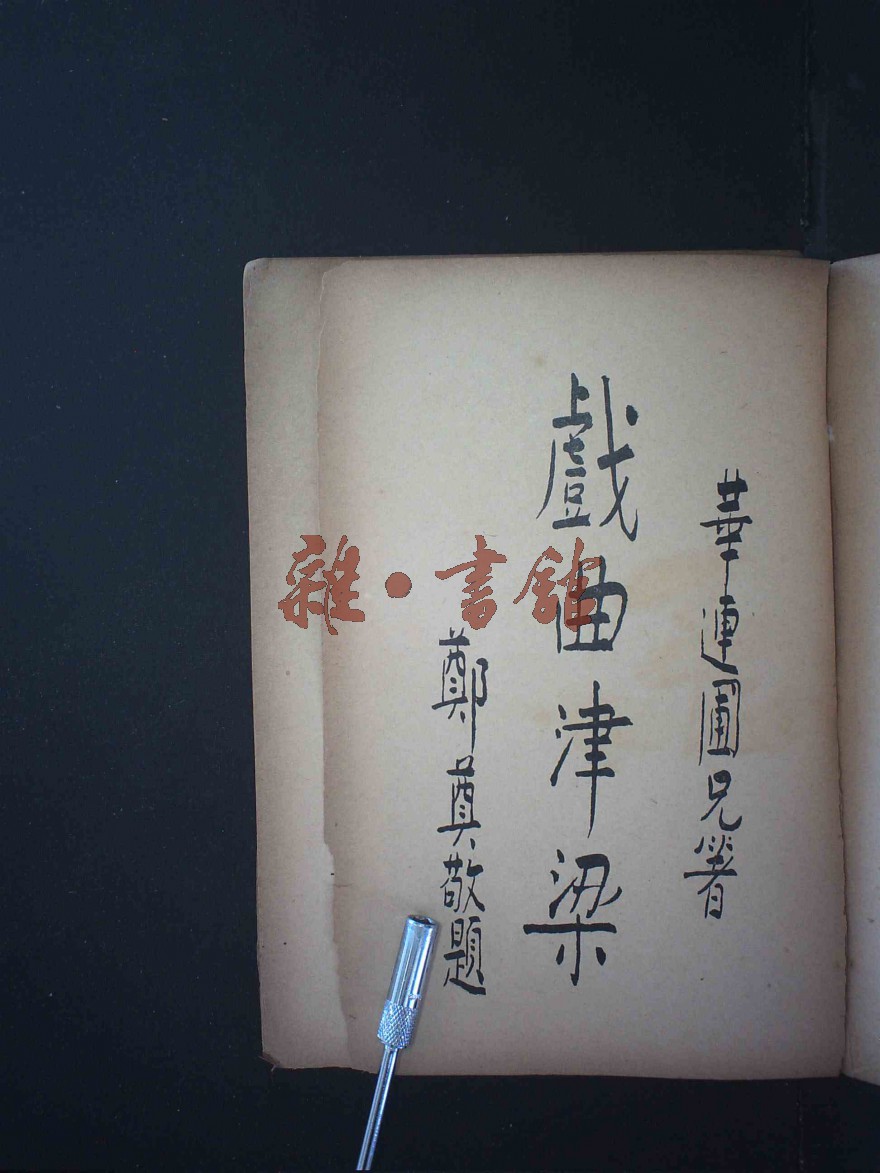 華連圃兄著
戲曲津梁
鄭奠敬題
雜·書館